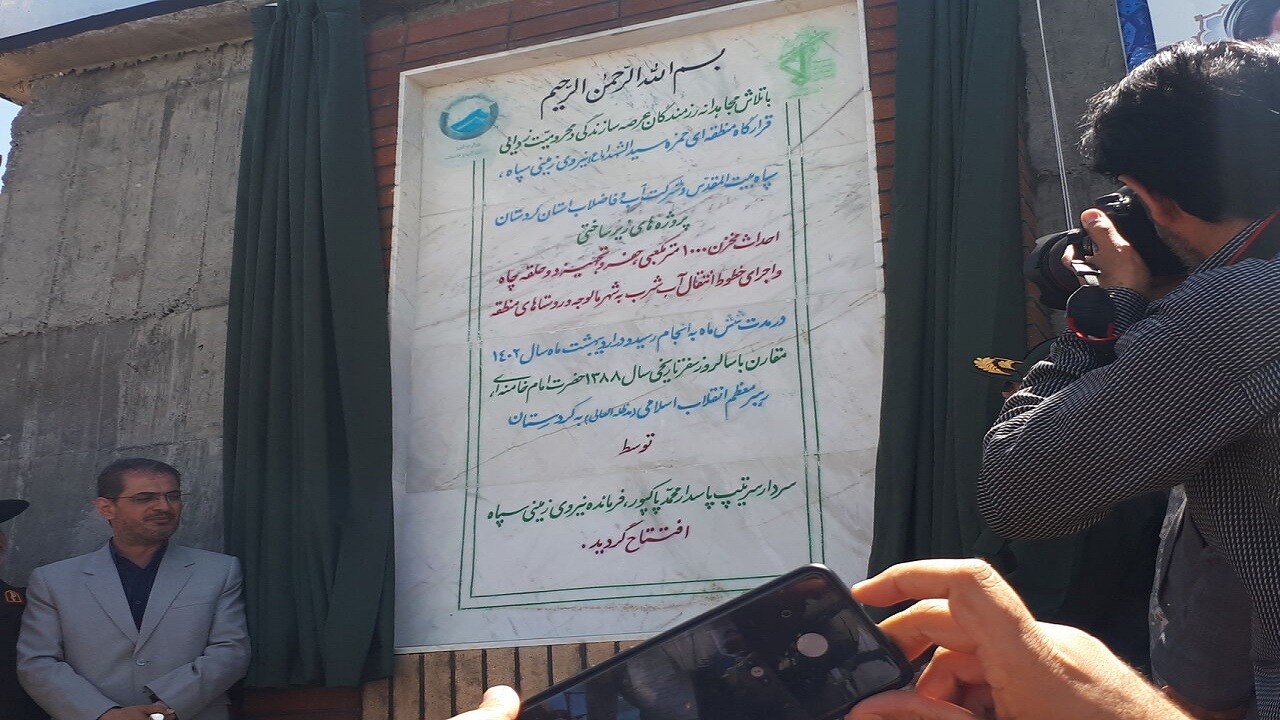 بسم الله الرحمن الرحیم
با تلاش مجاهدانه رزمندگان عرصه سازندگی و محرومیت زدایی
قرارگاه منطقه ای حمزه سیدالشهداء(ع) نیروی زمینی سپاه ،
سپاه بیت المقدس و شرکت آب و فاضلاب استان کردستان
پروژه های زیرساختی
احداث مخزن ۱۰۰۰ متر مکعبی ، حفر و تجهیز دو حلقه چاه
و اجرای خطوط انتقال آب شرب به شهر مالوجه و روستاهای منطقه
در مدت شش ماه به انجام رسید و در اردیبهشت ماه سال ۱۴۰۲
مقارن با سالروز سفر تاریخی سال ۱۳۸۸ حضرت امام خامنه ای
رهبر معظم انقلاب اسلامی (مدظله العالی) به کردستان
توسط
سردار سرتیپ پاسدار محمد پاکپور ، فرمانده نیروی زمینی سپاه
افتتاح گردید .